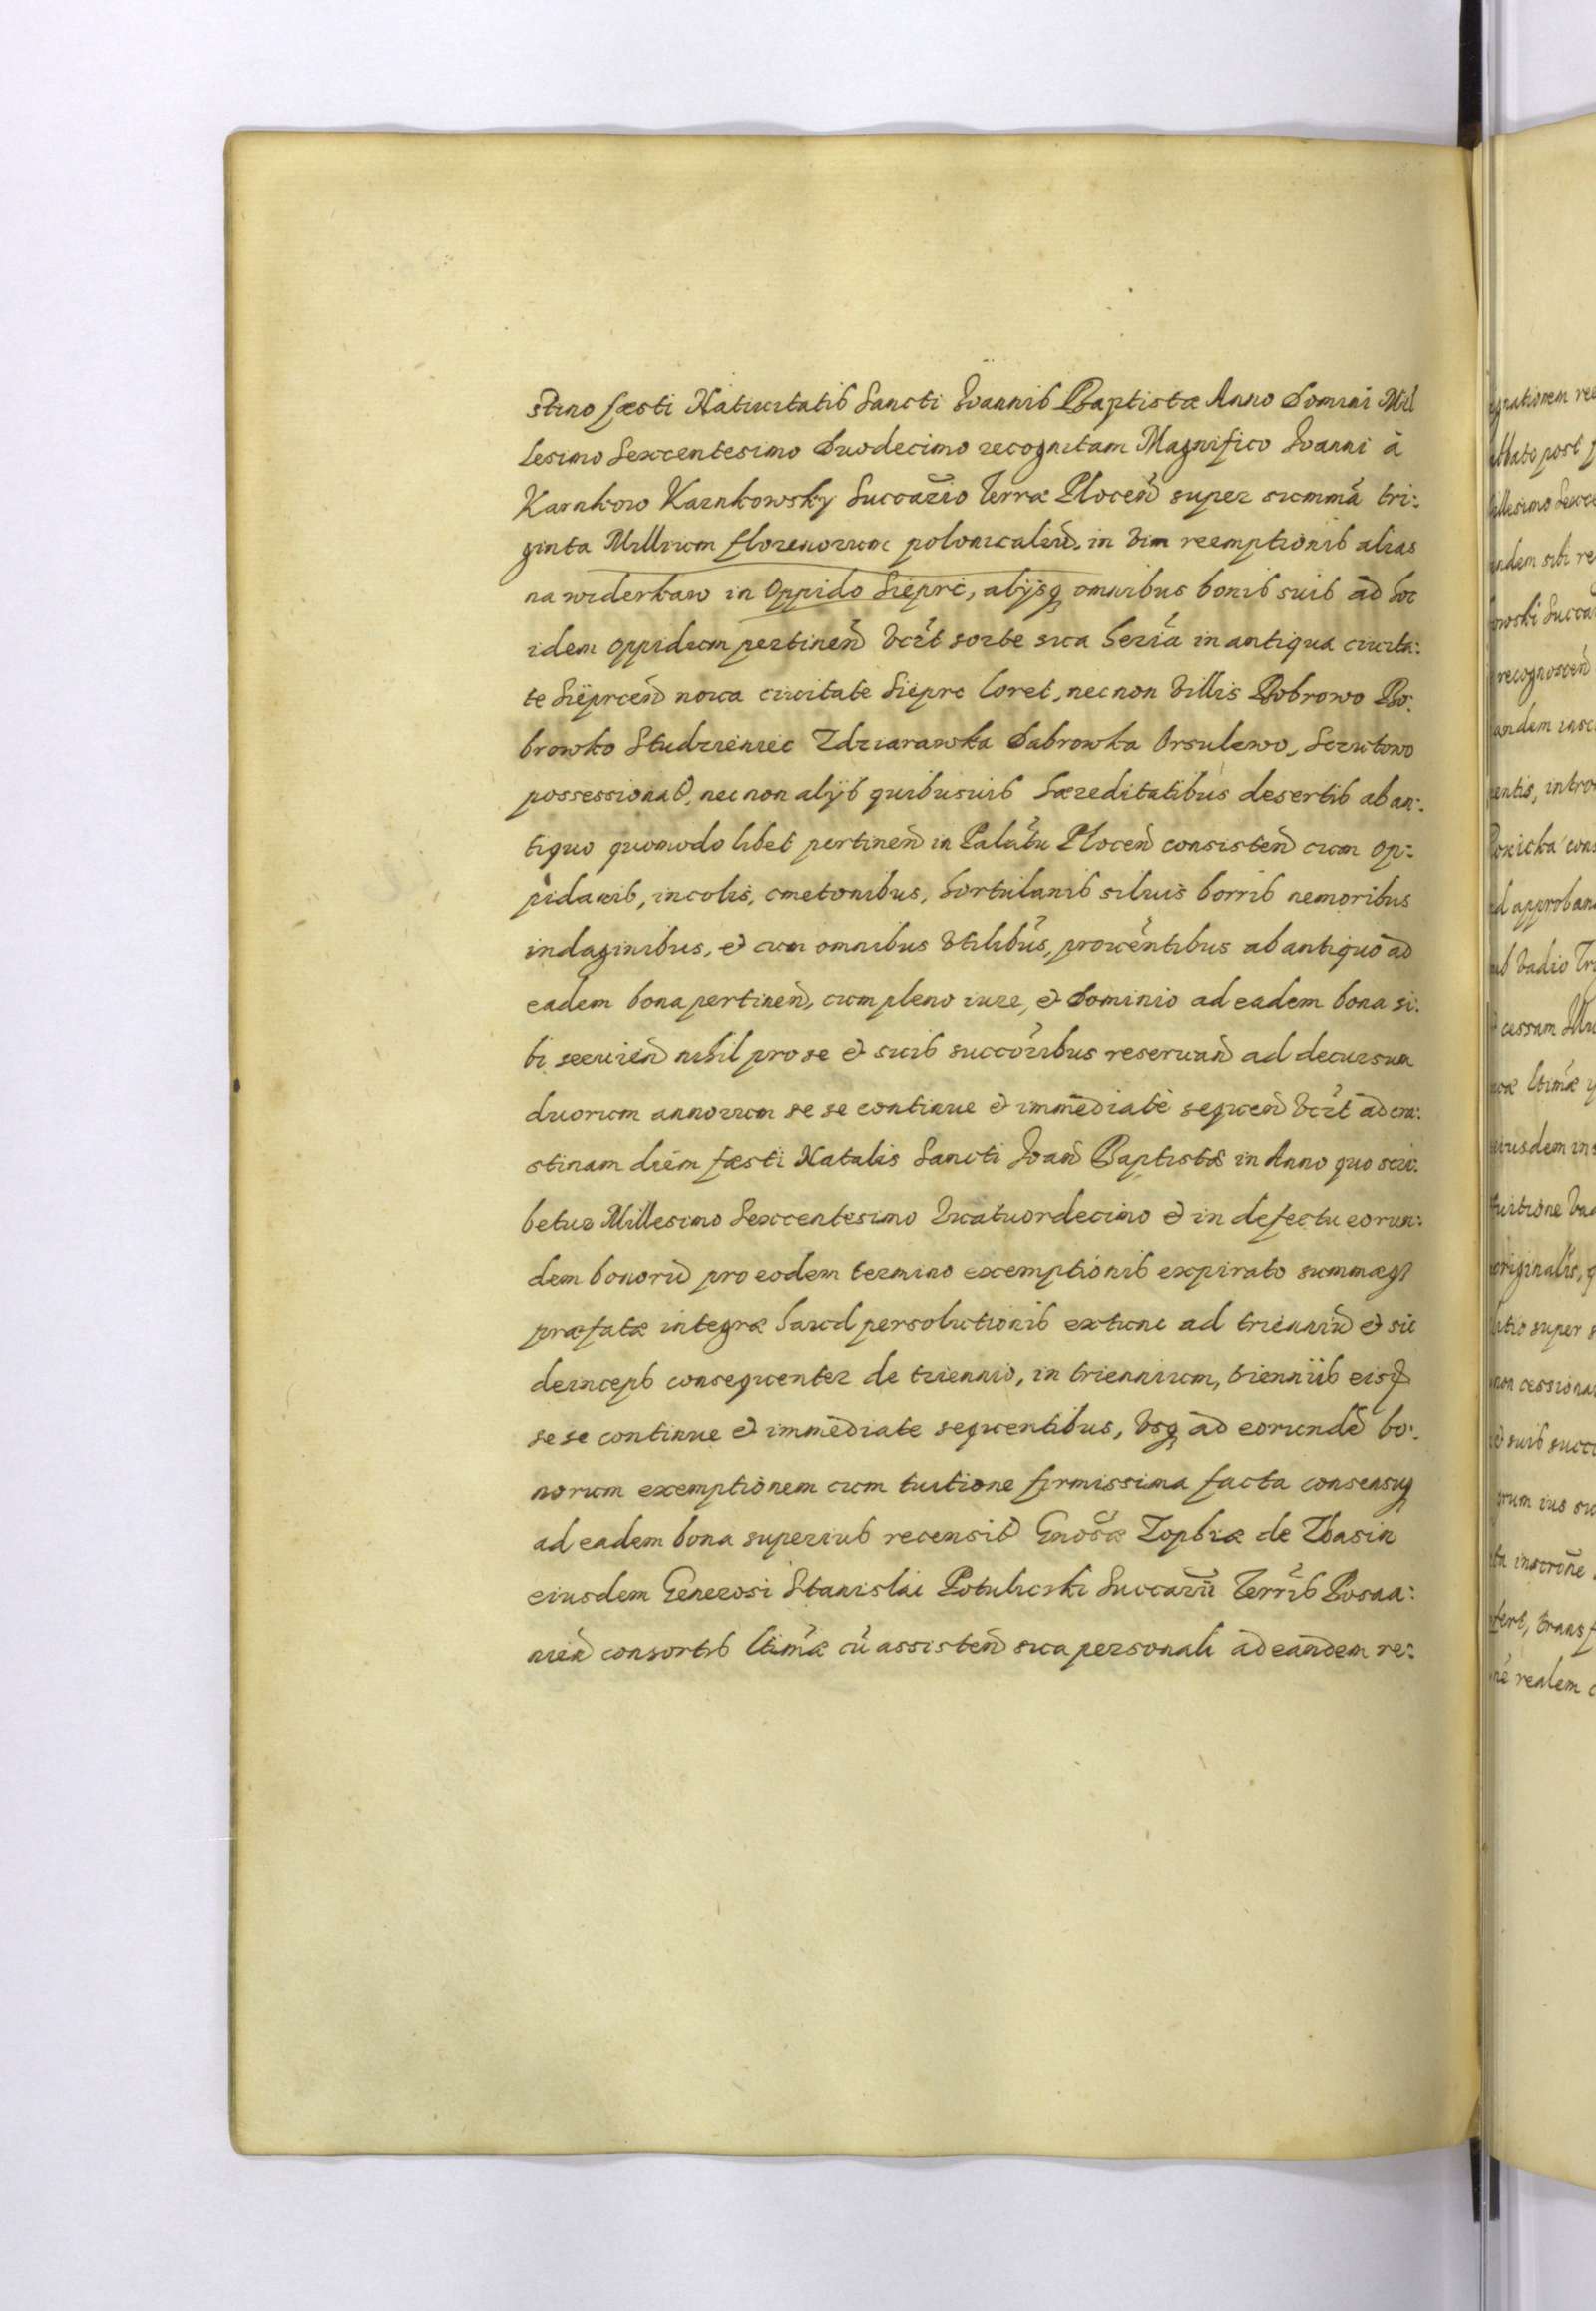 stino fæsti Natiuitatis Sancti Joannis Baptistæ Anno Domini Mil
lesimo Sexcentesimo Duodecimo recognitam Magnifico Joanni à
Karnkow Karnkowsky Succario Terræ Plocen super summã tri:
ginta Millium florenorum polonicaliũ, in vim reemptionis alias
na widerkaw in Oppido Sieprc, alijsq omnibus bonis suis ad hoc
idem oppidum pertinen vczt sorte sua hezia in antiqua ciuita:
te Sieprcen noua ciuitate Sieprc loret, nec non villis Bobrowo Bo:
browko Studzieniec Zdziarawka Dabrowka Orsulewo, Sczutowo
possessionat, nec non alijs quibusuis hæreditatibus desertis ab an:
tiquo quomodo libet pertinen in Palatu Plocen consisten cum op:
pidanis, incolis, cmetonibus, hortulanis siluis borris nemoribus
indaginibus, et cum omnibus vtilibus, prouentibus ab antiquo ad
eadem bona pertinen, cum pleno iure, et Dominio ad eadem bona si:
bi seruien nihil pro se et suis succoribus reseruan ad decursum
duorum annorum se se continue et immediatè sequen vczt ad cra:
stinam diem fæsti Natalis Sancti Joan Baptistæ in Anno quo scri:
betur Millesimo Sexcentesimo Quatuordecimo et in defectu eorun:
dem bonorũ pro eodem termino exemptionis expirato summæq
præfatæ integræ haud persolutionis extunc ad trienniũ et sic
deinceps consequenter de triennio, in triennium, trienniis eisq
se se continue et immediate sequentibus, vsq ad eorundẽ bo:
norum exemptionem cum tuitione firmissima facta consensuq
ad eadem bona superius recensit Gnosæ Zophiæ de Zbasin
eiusdem Generosi Stanislai Potulicski Succarii Terris Posna:
nien consortis ltimæ cũ assisten sua personali ad eandem re: